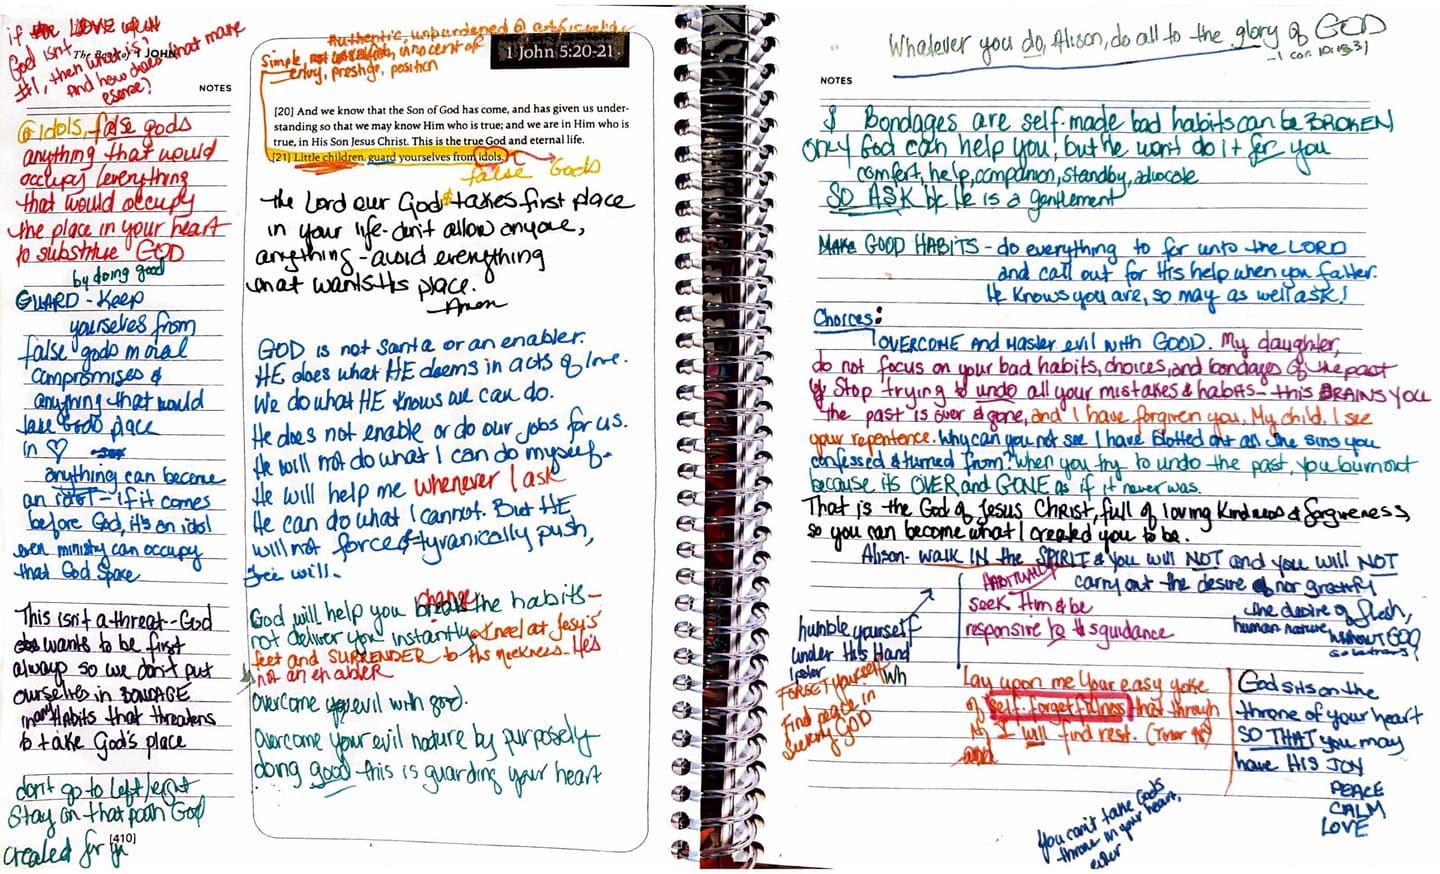 if the LOVE with
God isn't
The Book of 1 JOHN
#1, then what is?
and how does that make
NOTES
@ idols, false gods
anything that would
occupy /everything
that would occupy
the place in your heart
to substitute GOD
by doing good
GUARD - Keep
yourselves from
false gods moral
compromises &
anything that would
take God's place
in ♡
anything can become
an idol - if it comes
before God, it's an idol
even ministry can occupy
that God space
This isn't a threat - God
wants to be first
always so we don't put
ourselves in BONDAGE
in any Habits that threatens
to take God's place
don't go to left/right
Stay on that path God
created for you
[410]
Authentic, unburdened of artificialities
Simple, innocent of
envy, prestige, position
1 John 5:20-21
[20] And we know that the Son of God has come, and has given us under-
standing so that we may know Him who is true; and we are in Him who is
true, in His Son Jesus Christ. This is the true God and eternal life.
[21] Little children, guard yourselves from idols.
false Gods
the Lord our God takes first place
in your life - don't allow anyone,
anything - avoid everything
what wants His place.
GOD is not Santa or an enabler.
HE does what HE deems in acts of love.
We do what HE knows we can do.
He does not enable or do our jobs for us.
He will not do what I can do myself.
He will help me whenever I ask
He can do what I cannot. But HE
will not force & tyranically push,
free will.
God will help you break change the habits -
not deliver you instantly. Kneel at Jesy's
feet and SURRENDER to His meekness - He's
not an enabler
Overcome evil with good.
Overcome your evil nature by purposely
doing good - this is guarding your heart
Whatever you do, Alison, do all to the glory of GOD
- 1 cor. 10:31
NOTES
Bondages are self-made bad habits can be BROKEN
only God can help you, but he won't do it for you
comfort, help, companion, standby, advocate
SO ASK bc He is a gentlement
MAKE GOOD HABITS - do everything to for unto the LORD
and call out for His help when you falter.
He knows you are, so may as well ask!
Choices:
OVERCOME and master evil with GOOD. My daughter,
do not focus on your bad habits, choices, and bondages of the past
Stop trying to undo all your mistakes & habits - this DRAINS YOU
the past is over & gone, and I have forgiven you, My child. I see
your repentence. Why can you not see I have blotted out all the sins you
confessed & turned from? When you try to undo the past, you burnout
because its OVER and GONE as if it never was.
That is the God of Jesus Christ, full of loving kindness & forgiveness,
so you can become what I created you to be.
Alison - walk IN the SPIRIT & you will NOT and you will NOT
HABITUALLY carry out the desire nor gratify
seek Him & be the desire of flesh,
responsive to His guidance human nature without GOD
humble yourself
under His Hand
1 peter
FORGET yourself
Find peace in
seeking GOD
Wh
Lay upon me Your easy yoke
of self forgetfulness that through
it I will find rest.
and
God sits on the
throne of your heart
SO THAT you may
have His JOY
PEACE
CALM
LOVE
You can't take Gods
throne in your heart,
either